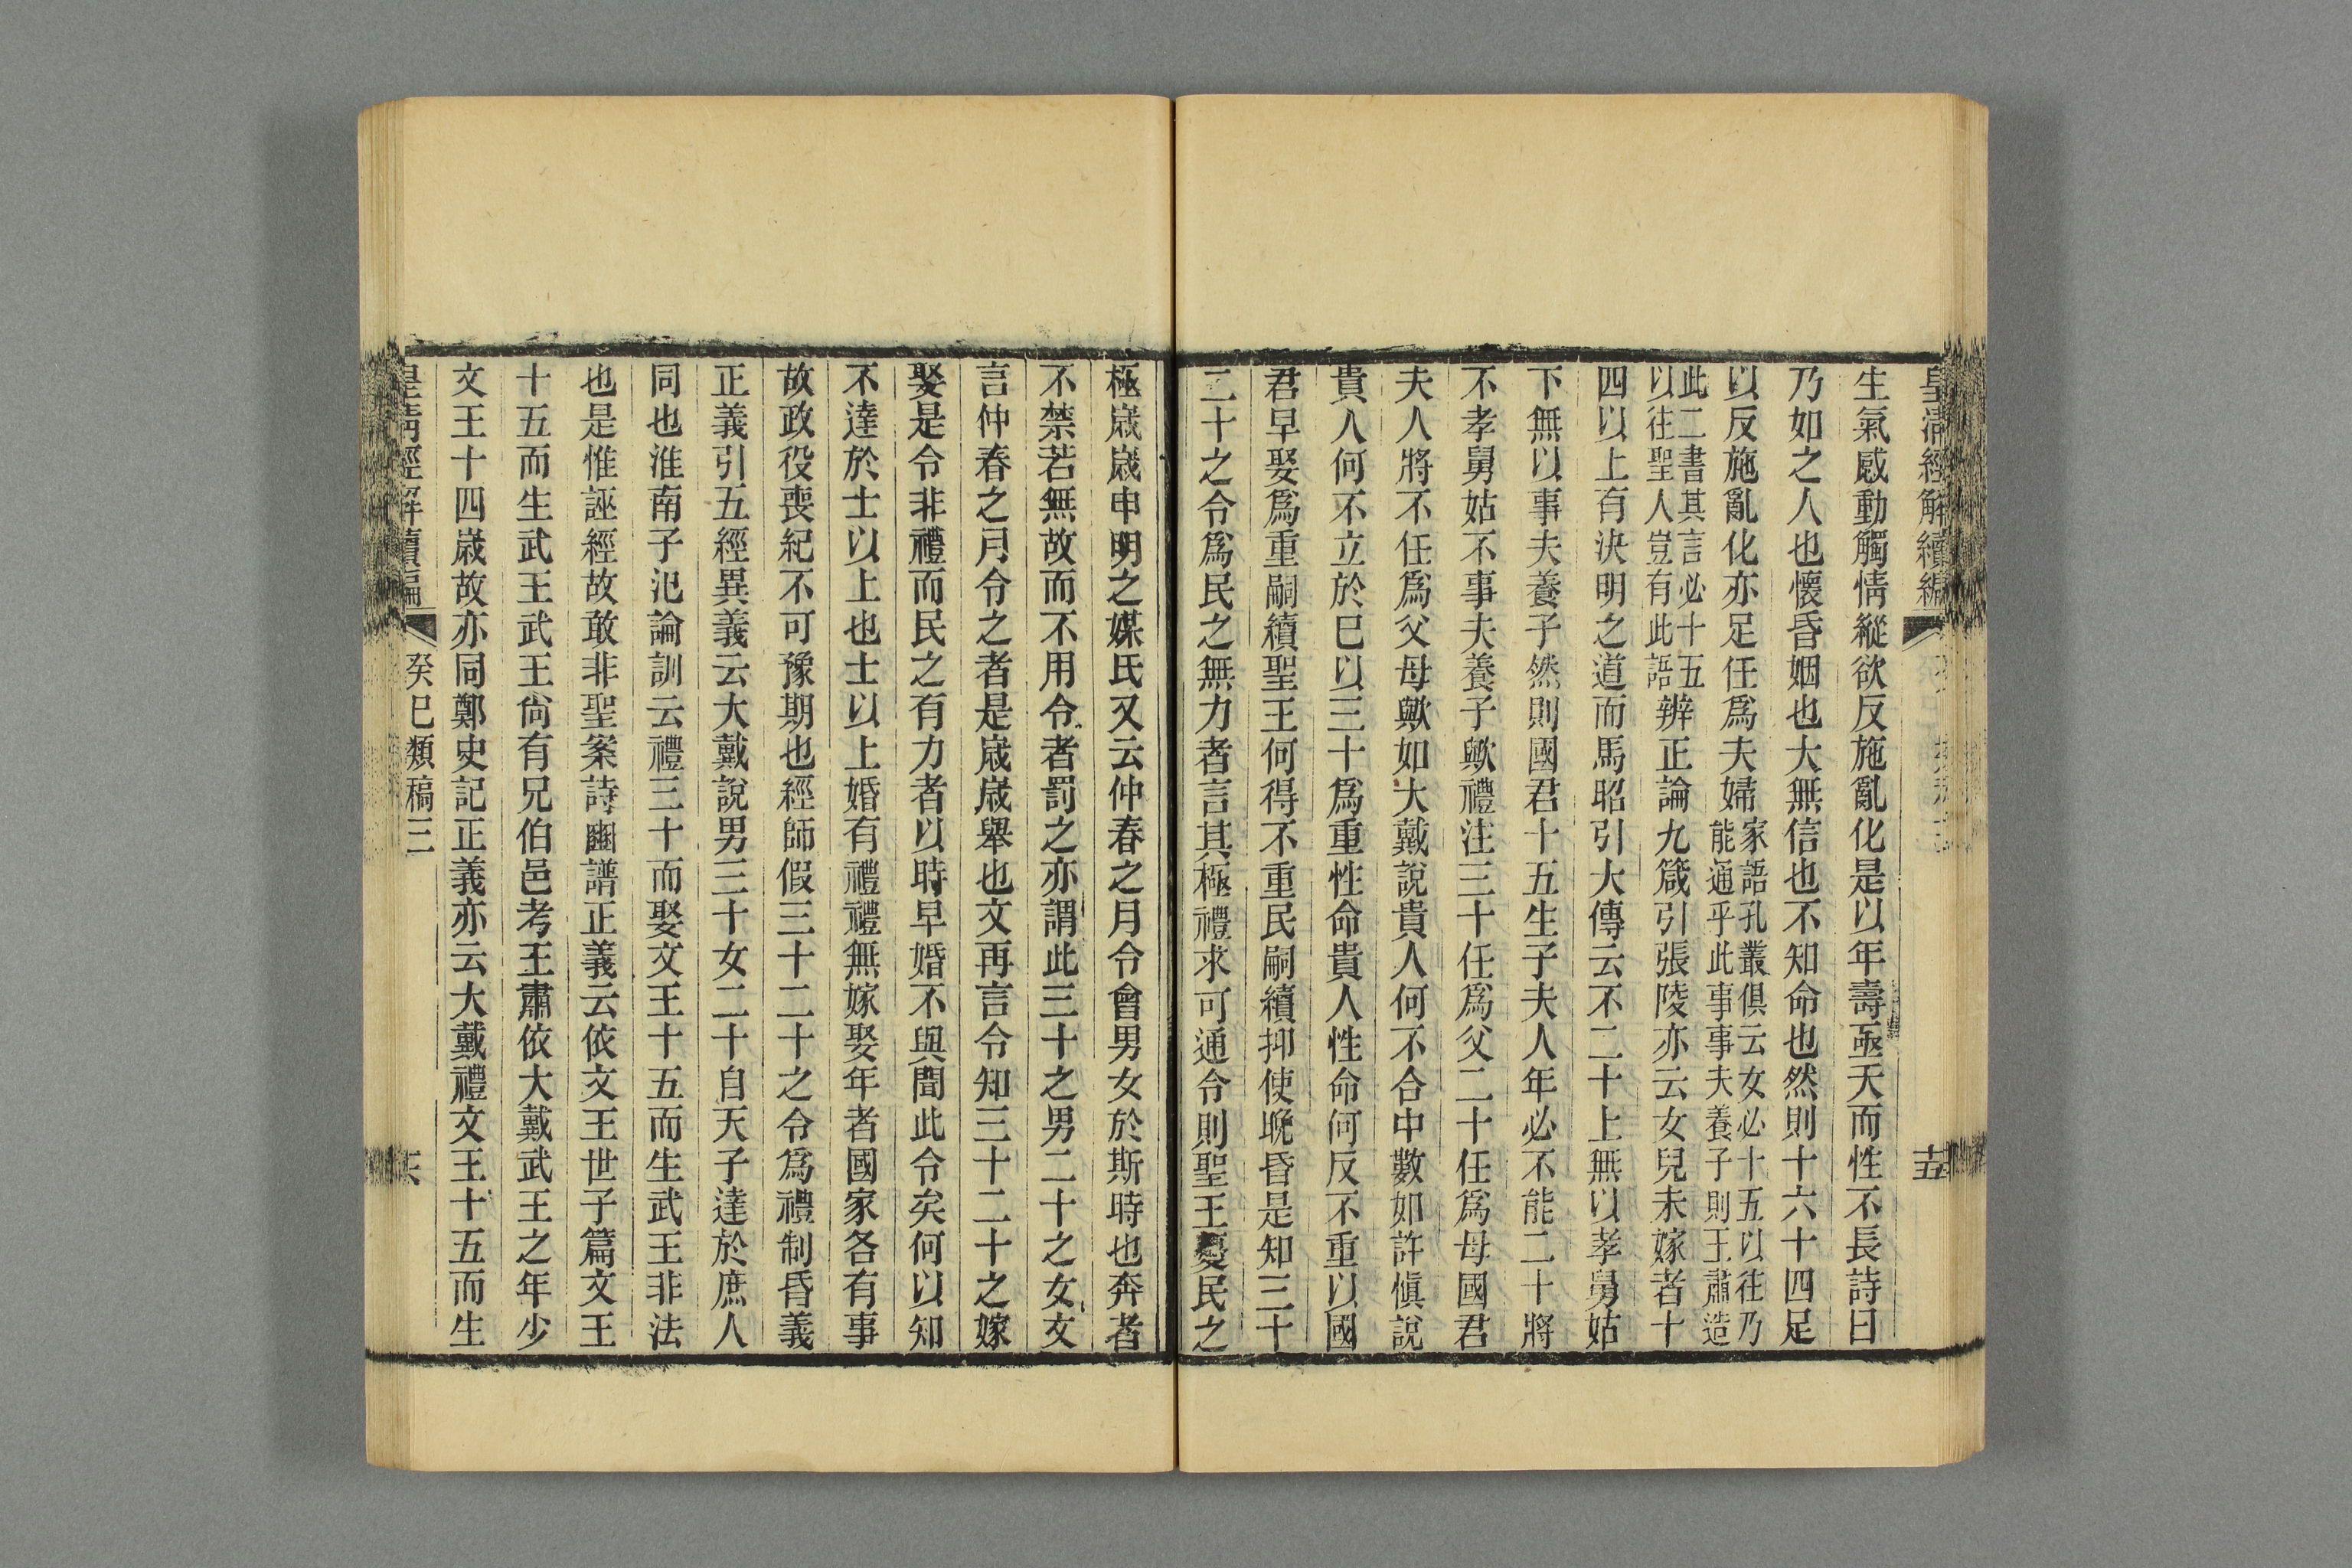 皇清經解續編
十五
生氣感動觸情縱欲反施亂化是以年壽亟夭而性不長詩曰
乃如之人也懷昏姻也大無信也不知命也然則十六十四足
以反施亂化亦足任爲夫婦家語孔叢俱云女必十五以往乃能通乎此事事夫養子則王肅造
此二書其言必十五以往聖人豈有此語辨正論九箴引張陵亦云女兒未嫁者十
四以上有決明之道而馬昭引大傳云不二十上無以孝舅姑
下無以事夫養子然則國君十五生子夫人年必不能二十將
不孝舅姑不事夫養子歟禮注三十任爲父二十任爲母國君
夫人將不任爲父母歟如大戴說貴人何不合中數如許愼說
貴人何不立於巳以三十爲重性命貴人性命何反不重以國
君早娶爲重嗣續聖王何得不重民嗣續抑使晚昏是知三十
二十之令爲民之無力者言其極禮求可通令則聖王憂民之
極歳歳申明之媒氏又云仲春之月令會男女於斯時也奔者
不禁若無故而不用令者罰之亦謂此三十之男二十之女文
言仲春之月令之者是歳歳舉也文再言令知三十二十之嫁
娶是令非禮而民之有力者以時早婚不與聞此令矣何以知
不達於士以上也士以上婚有禮禮無嫁娶年者國家各有事
故政役喪紀不可豫期也經師假三十二十之令爲禮制昏義
正義引五經異義云大戴說男三十女二十自天子達於庶人
同也淮南子氾論訓云禮三十而娶文王十五而生武王非法
也是惟誣經故敢非聖案詩豳譜正義云依文王世子篇文王
十五而生武王武王尙有兄伯邑考王肅依大戴武王之年少
文王十四歳故亦同鄭史記正義亦云大戴禮文王十五而生
皇清經解續編
癸巳類稿三